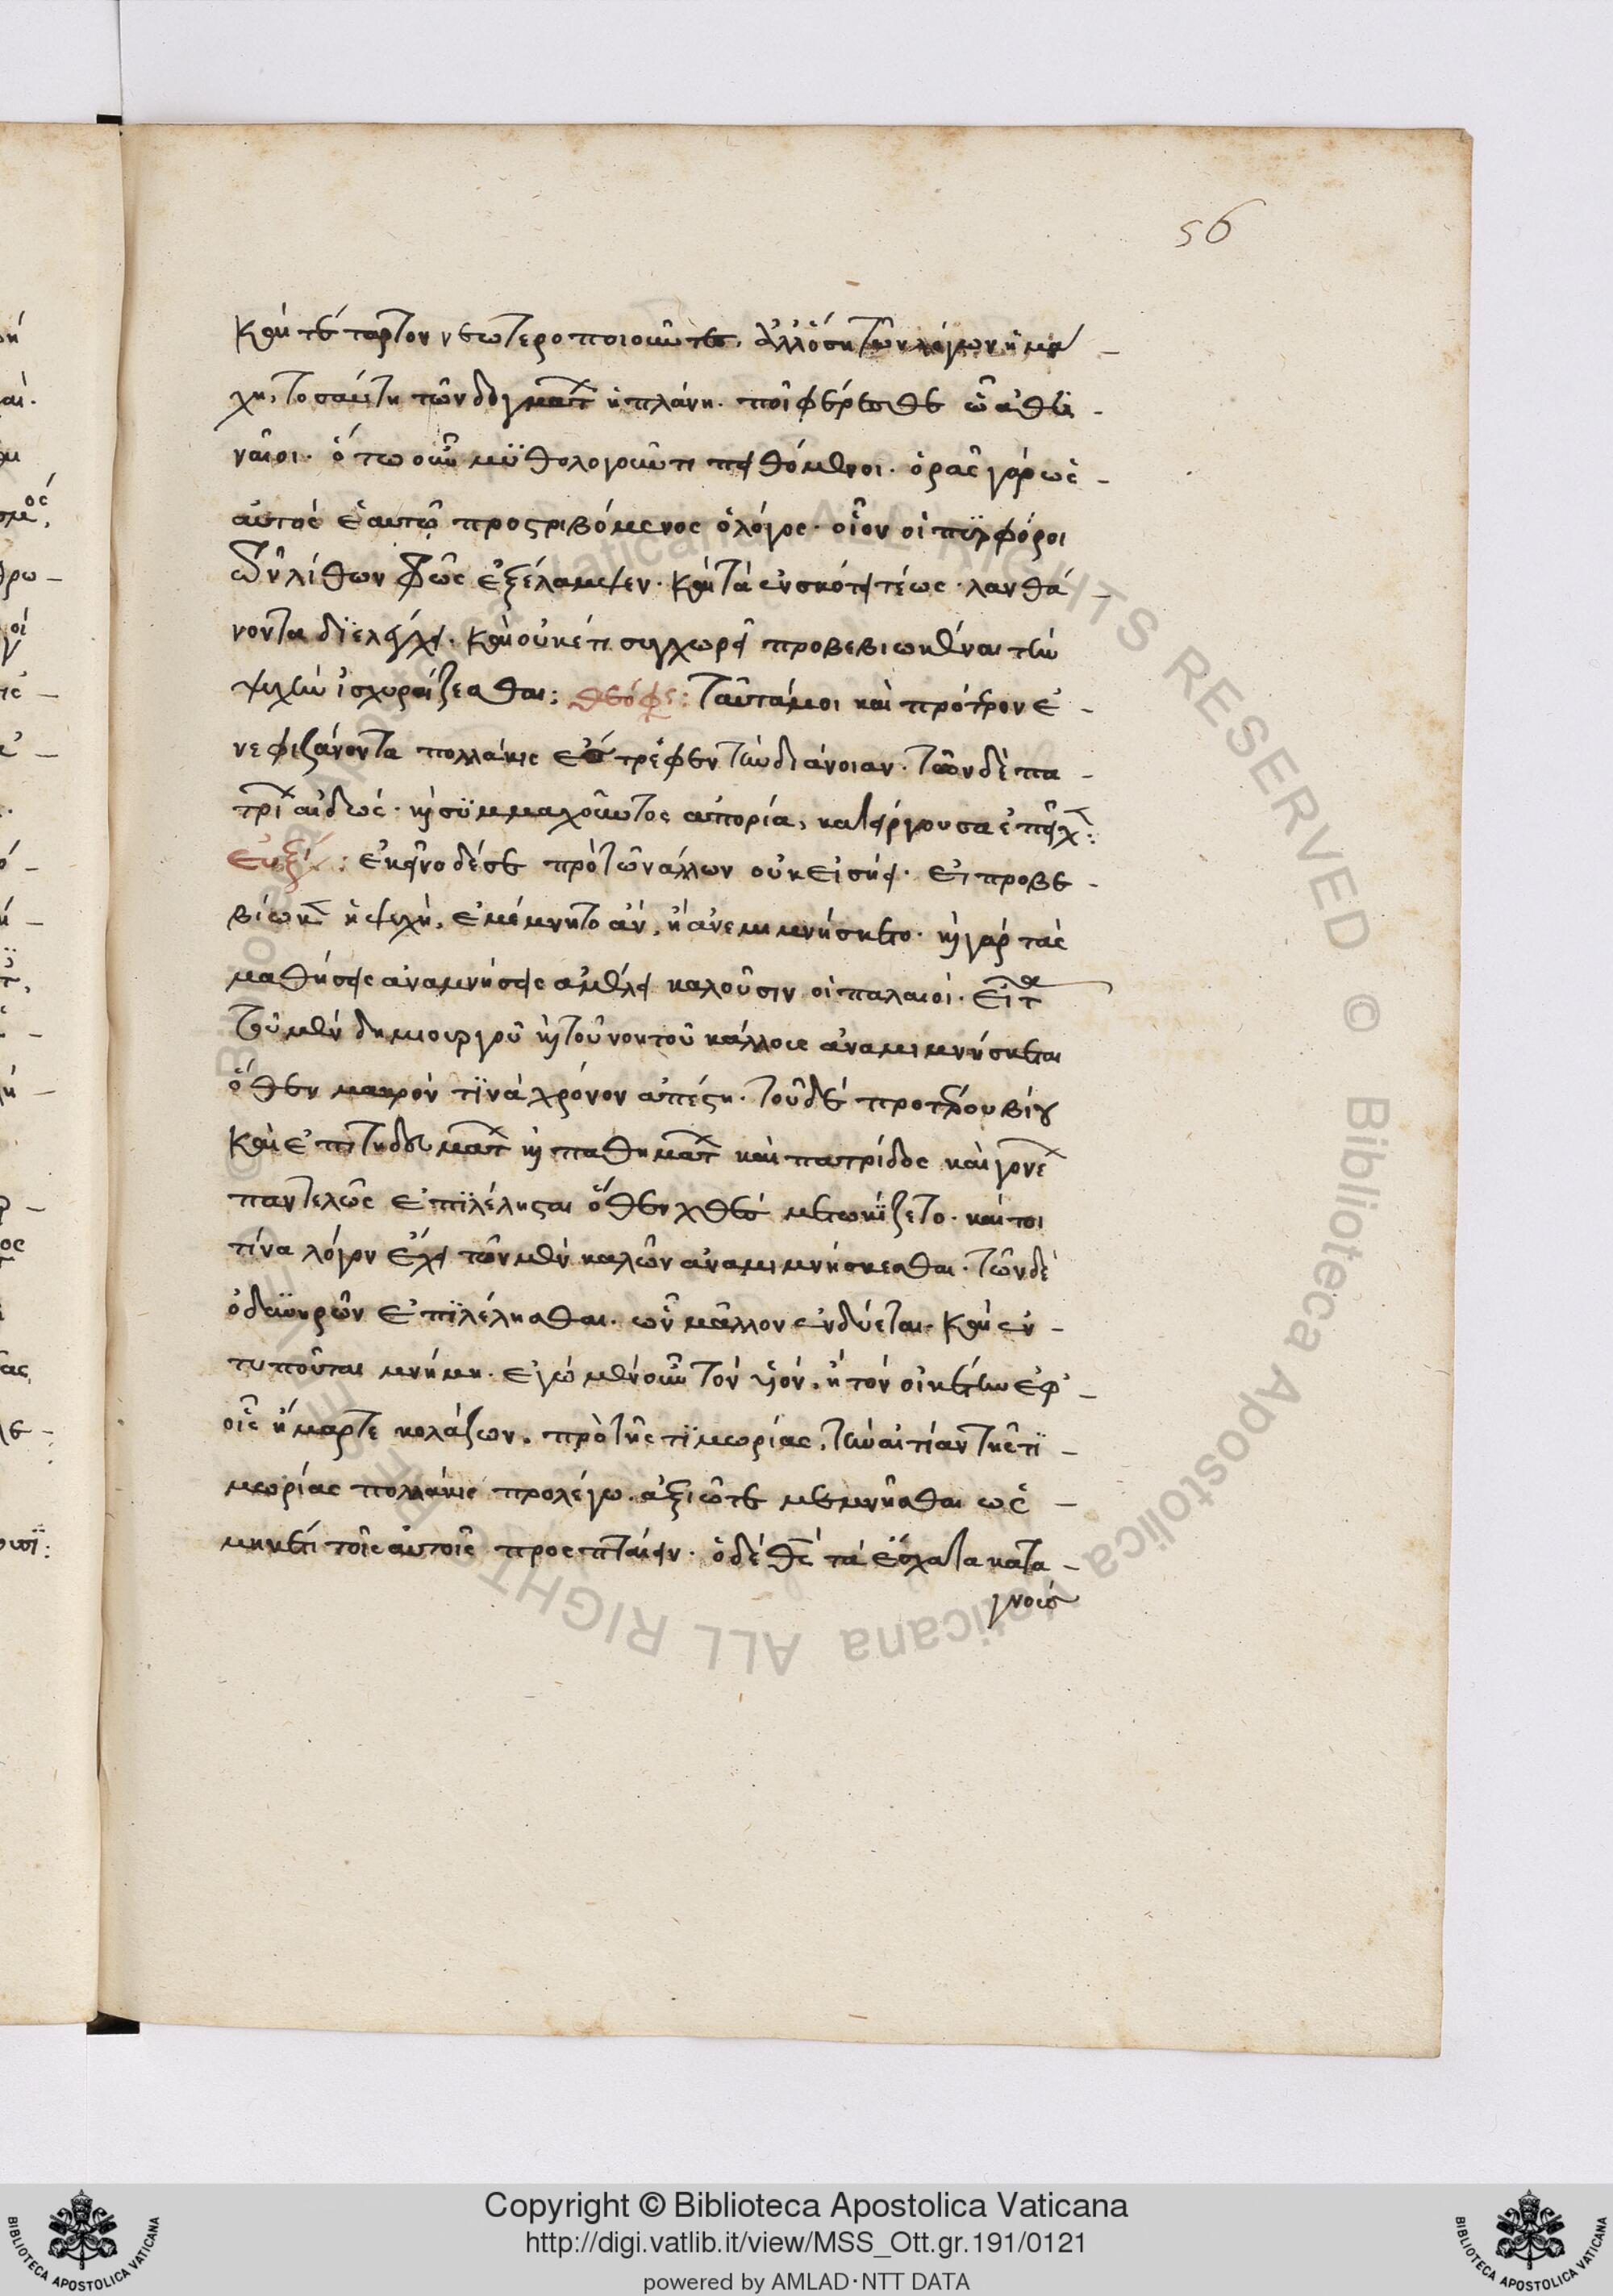 56
καὶ τέταρτον νεωτεροποιοῦντες. ἀλλ' ὅση τῶν λόγων ἡ μά
χη, τοσαύτη τῶν δογμάτ ἡ πλάνη. ποῖ φέρεσθε ὦ ἀθη
ναῖοι. ὅτω οὖν μϋθολογοῦντι πειθόμενοι. ὁρᾶς γὰρ ὡς
αὐτὸς ἑαυτῶ προστριβόμενος ὁ λόγος. οἷον οἱ πϋρφόροι
τῶν λίθων φῶς ἐξέλαμψεν. καὶ τὰ ἐν σκότει τέως λανθά
νοντα διελέγχει. καὶ οὐκέτι συγχωρεῖ προβεβιωκέναι τὴν
ψυχὴν ἰσχυρίζεσθαι: θεόφς: ταῦτά μοι καὶ πρότερον ἐ
νεφιζάνοντα πολλάκις ἔστρεφεν τὴν διάνοιαν. τῶν δὲ πα
τρί αἰδώς. καὶ συμμαχοῦντος ἀπορία, κατείργουσα ἐπεῖχ:
Εὐξί: ἐκεῖνο δέ σε πρὸ τῶν ἄλλων οὐκ εἰσήει. εἰ προβε
βίωκ ἡ ψυχὴ, ἐμέμνητο ἂν, ἢ ἀνεμιμνήσκετο. καὶ γὰρ τὰς
μαθήσεις ἀναμνήσεις ἀμέλει καλοῦσιν οἱ παλαιοί. εἶτα
τοῦ μὲν δημιουργοῦ καὶ τοῦ νοητοῦ κάλλους ἀναμιμνήσκεται
ὅθεν μακρόν τινὰ χρόνον ἀπέστη. τοῦ δὲ προτέρου βίου
καὶ ἐπιτηδευμάτ καὶ παθημάτ καὶ πατρίδος καὶ γονέ
παντελῶς ἐπϊλέλησται ὅθεν χθὲς μετωκίζετο. καίτοι
τίνα λόγον ἔχει τῶν μὲν καλῶν ἀναμιμνήσκεσθαι. τῶν δὲ
ὀδϋνηρῶν ἐπϊλέλησθαι. ὧν μᾶλλον ἐνδύεται. καὶ ἐν
τυποῦται μνήμη. ἐγὼ μὲν οὖν τὸν υἱόν, ἢ τὸν οἰκέτην ἐφ'
οἷς ἥμαρτε κολάζων. πρὸ τῆς τϊμωρίας, τὴν αἰτίαν τῆς τϊ
μωρίας πολλάκις προλέγω. ἀξιῶ τε μεμνῆσθαι ὡς
μηκέτι τοῖς αὐτοῖς προσπταίειν. ὁ δὲ θς τὰ ἔσχατα κατα
γνοὺς
Copyright © Biblioteca Apostolica Vaticana
http://digi.vatlib.it/view/MSS_Ott.gr.191/0121
powered by AMLAD·NTT DATA